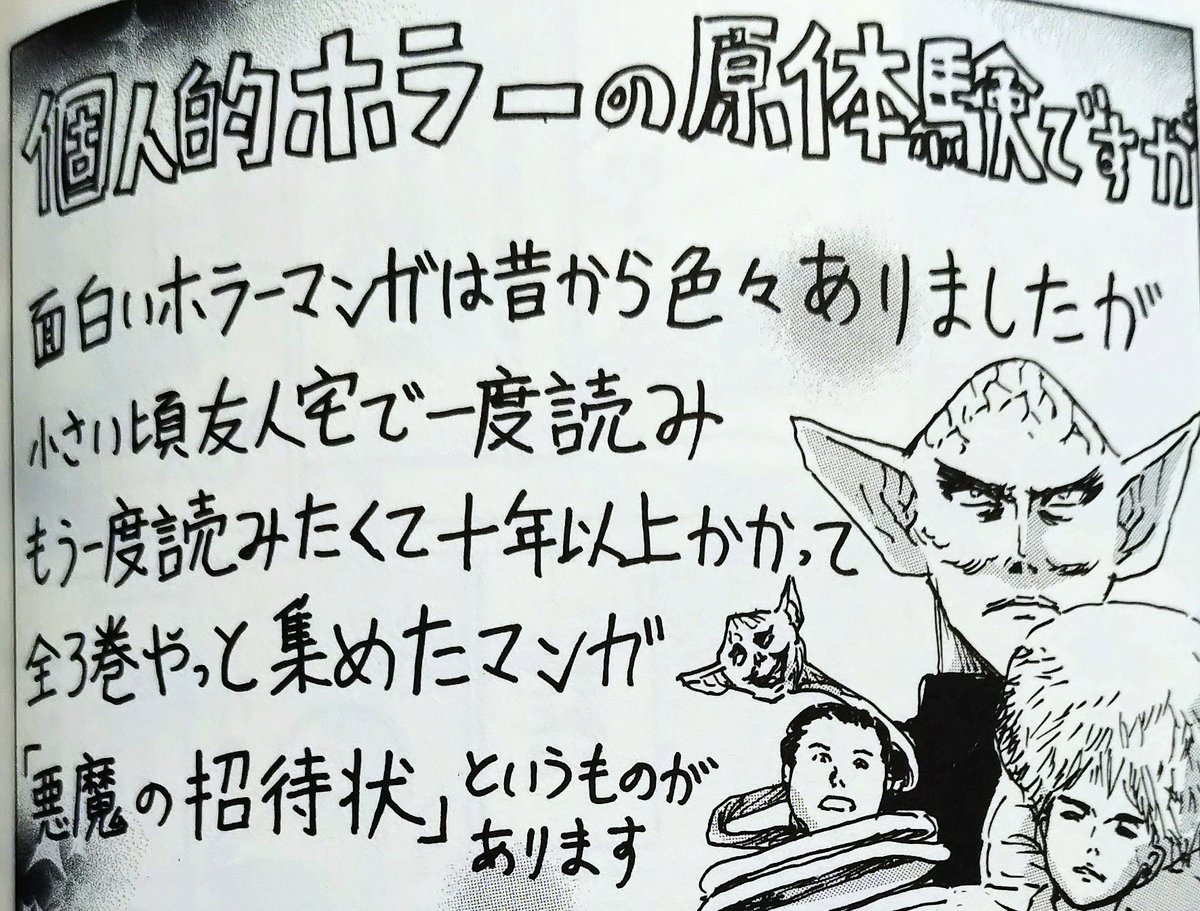 個人的ホラーの原体験ですが
面白いホラーマンガは昔から色々ありましたが
小さい頃友人宅で一度読み
もう一度読みたくて十年以上かかって
全3巻やっと集めたマンガ
「悪魔の招待状」というものが
あります